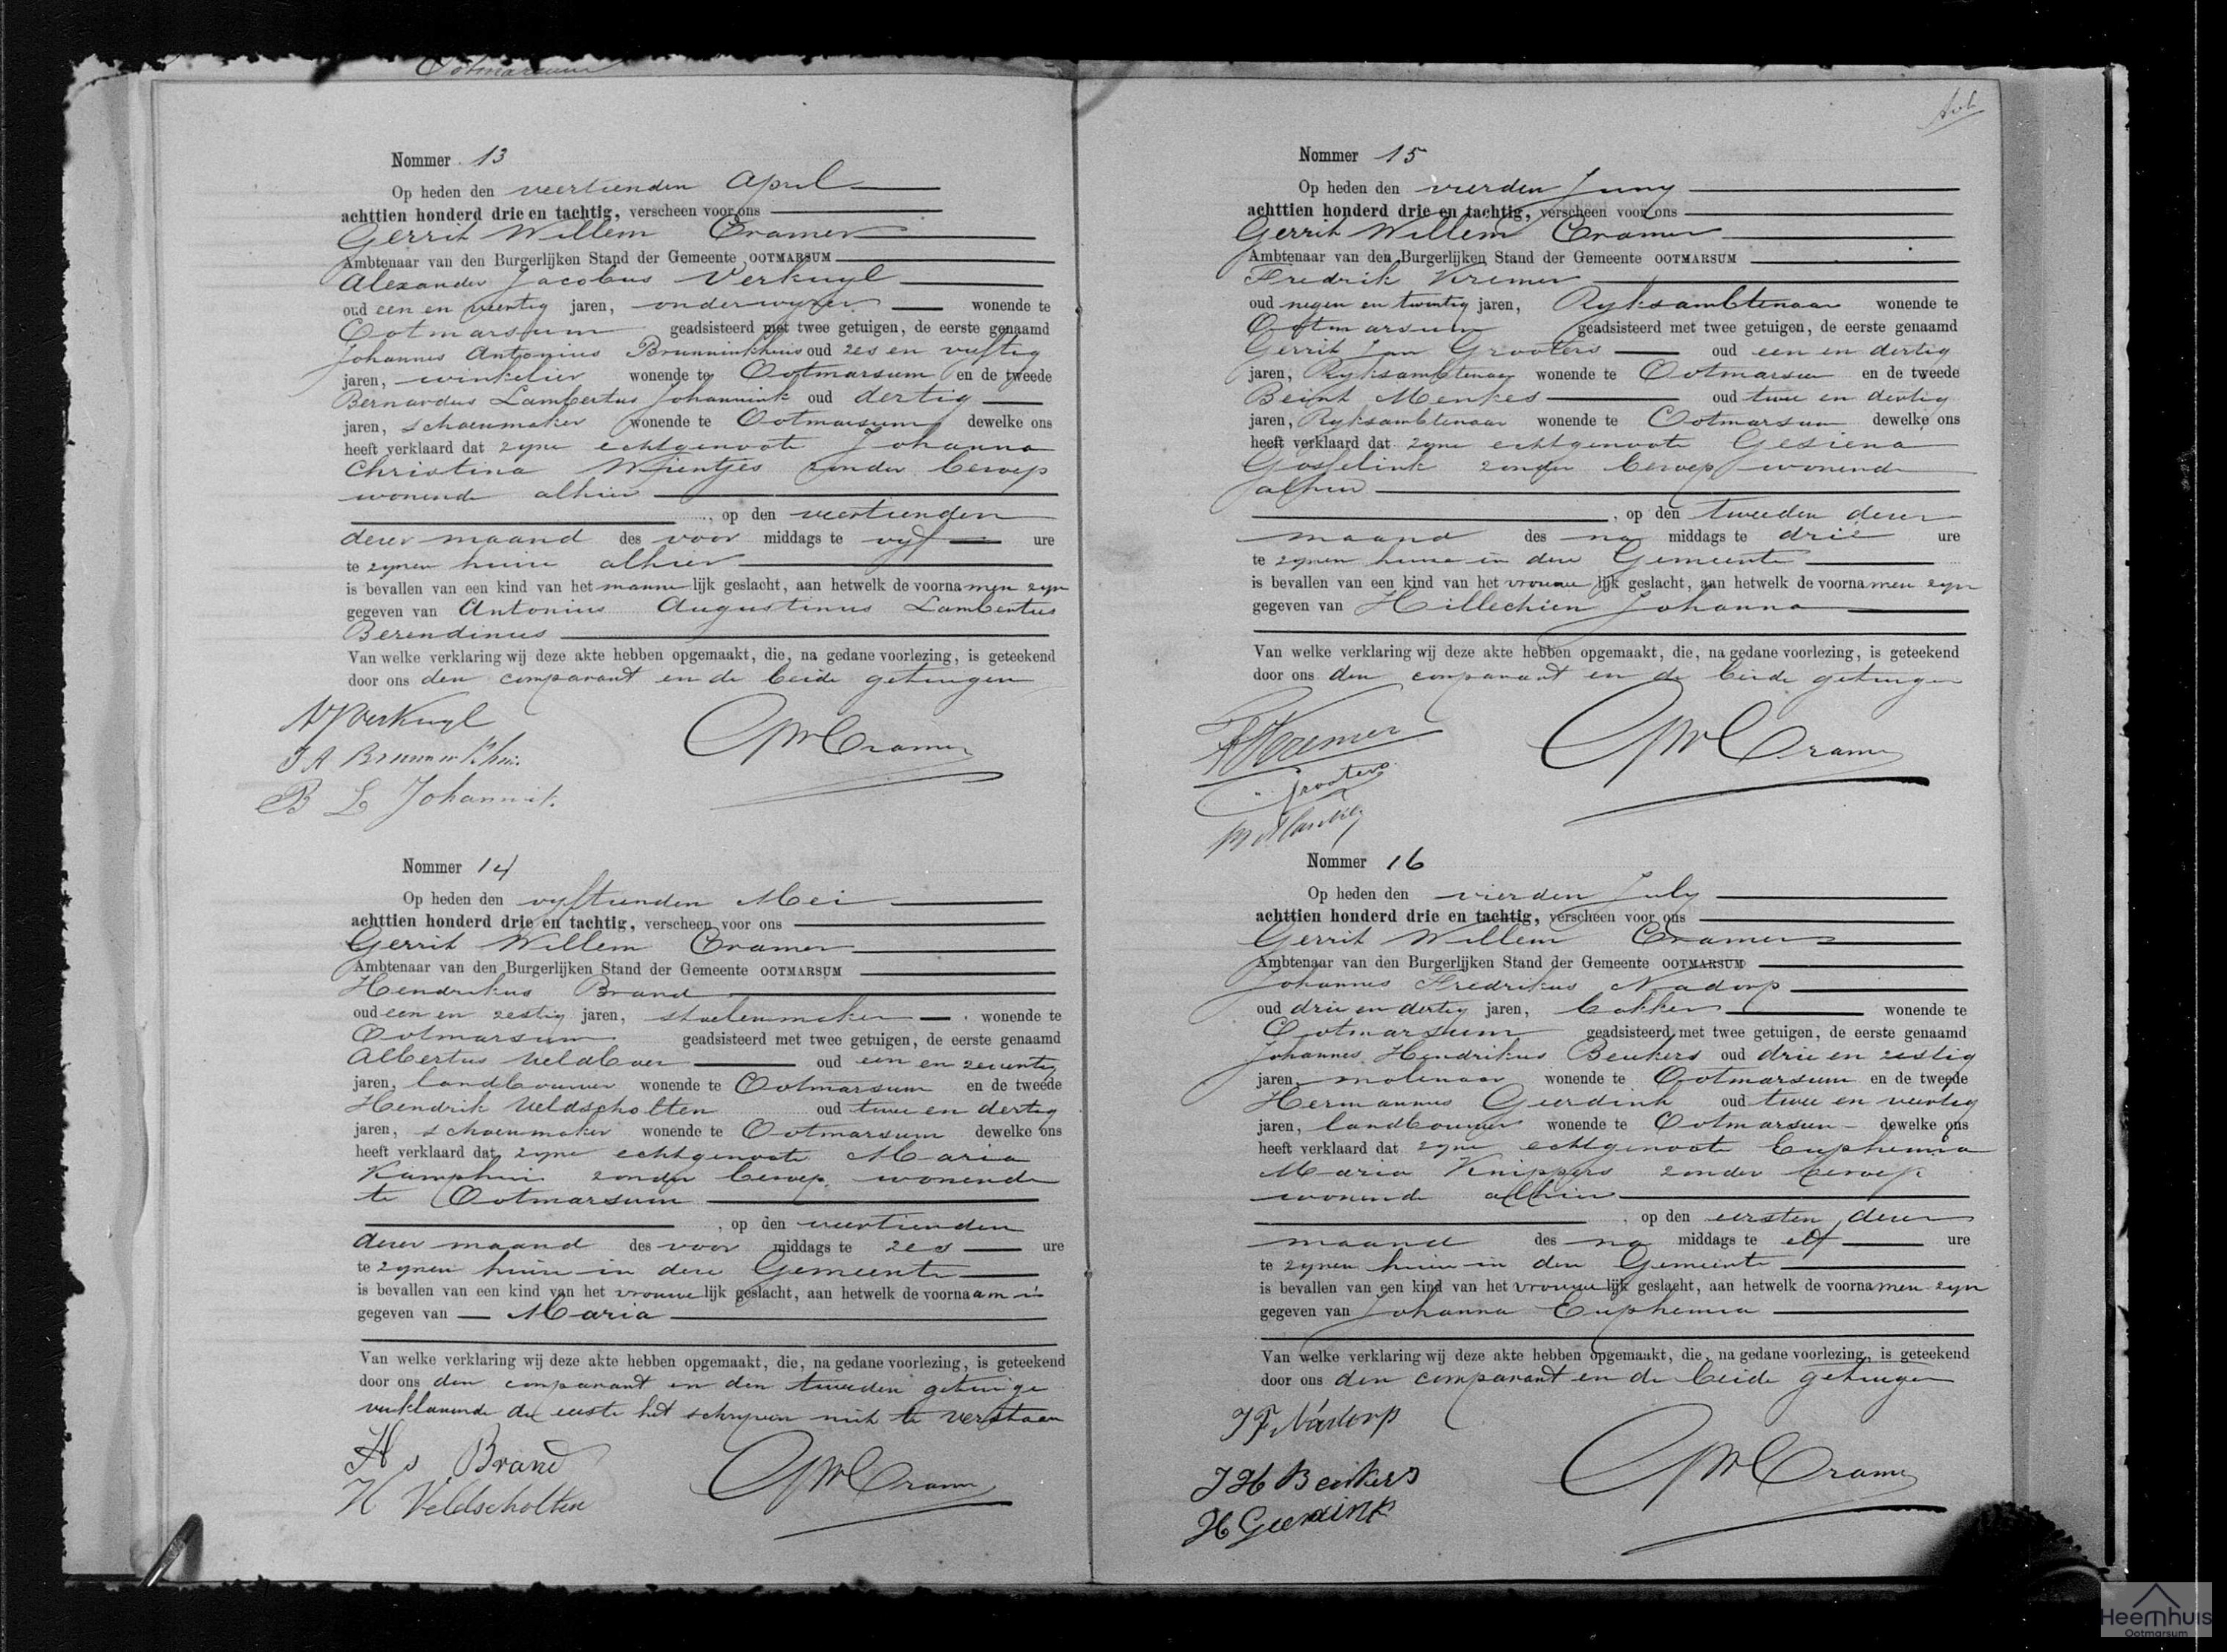 Ootmarsum
Nommer 13
Op heden den veertienden April
achttien honderd drie en tachtig, verscheen voor ons
Gerrit Willem Cramer
Ambtenaar van den Burgerlijken Stand der Gemeente OOTMARSUM
Alexander Jacobus Verkuyl
oud een en veertig jaren, onderwyzer wonende te
Ootmarsum geadsisteerd met twee getuigen, de eerste genaamd
Johannes Antonius Brunninkhuis oud zes en vyftig
jaren, winkelier wonende te Ootmarsum en de tweede
Bernardus Lambertus Johannink oud dertig
jaren, schoenmaker wonende te Ootmarsum dewelke ons
heeft verklaard dat zyne echtgenoote Johanna
Christina Wientjes zonder beroep
wonende alhier
, op den veertienden
dezer maand des voor middags te vyf ure
te zynen huize alhier
is bevallen van een kind van het mannelijk geslacht, aan hetwelk de voornamen zyn
gegeven van Antonius Augustinus Lambertus
Berendinus
Van welke verklaring wij deze akte hebben opgemaakt, die, na gedane voorlezing, is geteekend
door ons den comparant en de beide getuigen
AJVerkuyl
GWCramer
J A Brunninkhuis
B L Johannink
Nommer 14
Op heden den vyftienden Mei
achttien honderd drie en tachtig, verscheen voor ons
Gerrit Willem Cramer
Ambtenaar van den Burgerlijken Stand der Gemeente OOTMARSUM
Hendrikus Brand
oud een en zestig jaren, stoelenmaker wonende te
Ootmarsum geadsisteerd met twee getuigen, de eerste genaamd
Albertus Veldboer oud een en zeventig
jaren, landbouwer wonende te Ootmarsum en de tweede
Hendrik Veldscholten oud twee en dertig
jaren, schoenmaker wonende te Ootmarsum dewelke ons
heeft verklaard dat zyne echtgenoote Maria
Kamphuis zonder beroep wonende
te Ootmarsum
, op den veertienden
dezer maand des voor middags te zes ure
te zynen huize in deze Gemeente
is bevallen van een kind van het vrouwelijk geslacht, aan hetwelk de voornaam is
gegeven van Maria
Van welke verklaring wij deze akte hebben opgemaakt, die, na gedane voorlezing, is geteekend
door ons den comparant en den tweeden getuige
verklarende de eerste het schryven niet te verstaan
Hs Brand
GWCramer
H Veldscholten
Nommer 15
Op heden den vierden Juny
achttien honderd drie en tachtig, verscheen voor ons
Gerrit Willem Cramer
Ambtenaar van den Burgerlijken Stand der Gemeente OOTMARSUM
Fredrik Kremer
oud negen en twintig jaren, Ryksambtenaar wonende te
Ootmarsum geadsisteerd met twee getuigen, de eerste genaamd
Gerrit Jan Grooters oud een en dertig
jaren, Ryksambtenaar wonende te Ootmarsum en de tweede
Beint Menkes oud twee en dertig
jaren, Ryksambtenaar wonende te Ootmarsum dewelke ons
heeft verklaard dat zyne echtgenoote Gesiena
Gosselink zonder beroep wonende
alhier
, op den tweeden dezer
maand des na middags te drie ure
te zynen huize in deze Gemeente
is bevallen van een kind van het vrouwelijk geslacht, aan hetwelk de voornamen zyn
gegeven van Hillechien Johanna
Van welke verklaring wij deze akte hebben opgemaakt, die, na gedane voorlezing, is geteekend
door ons den comparant en de beide getuigen
FKremer
GWCramer
Grooters
Nommer 16
Op heden den vierden July
achttien honderd drie en tachtig, verscheen voor ons
Gerrit Willem Cramer
Ambtenaar van den Burgerlijken Stand der Gemeente OOTMARSUM
Johannes Fredrikus Nadorp
oud drie en dertig jaren, bakker wonende te
Ootmarsum geadsisteerd met twee getuigen, de eerste genaamd
Johannes Hendrikus Beukers oud drie en zestig
jaren, molenaar wonende te Ootmarsum en de tweede
Hermannus Geerdink oud twee en veertig
jaren, landbouwer wonende te Ootmarsum dewelke ons
heeft verklaard dat zyne echtgenoote Euphemia
Maria Knippers zonder beroep
wonende alhier
, op den eersten dezer
maand des na middags te elf ure
te zynen huize in deze Gemeente
is bevallen van een kind van het vrouwelijk geslacht, aan hetwelk de voornamen zyn
gegeven van Johanna Euphemia
Van welke verklaring wij deze akte hebben opgemaakt, die, na gedane voorlezing, is geteekend
door ons den comparant en de beide getuigen
J F Nadorp
GWCramer
J H Beukers
H Geerdink
Heemhuis
Ootmarsum